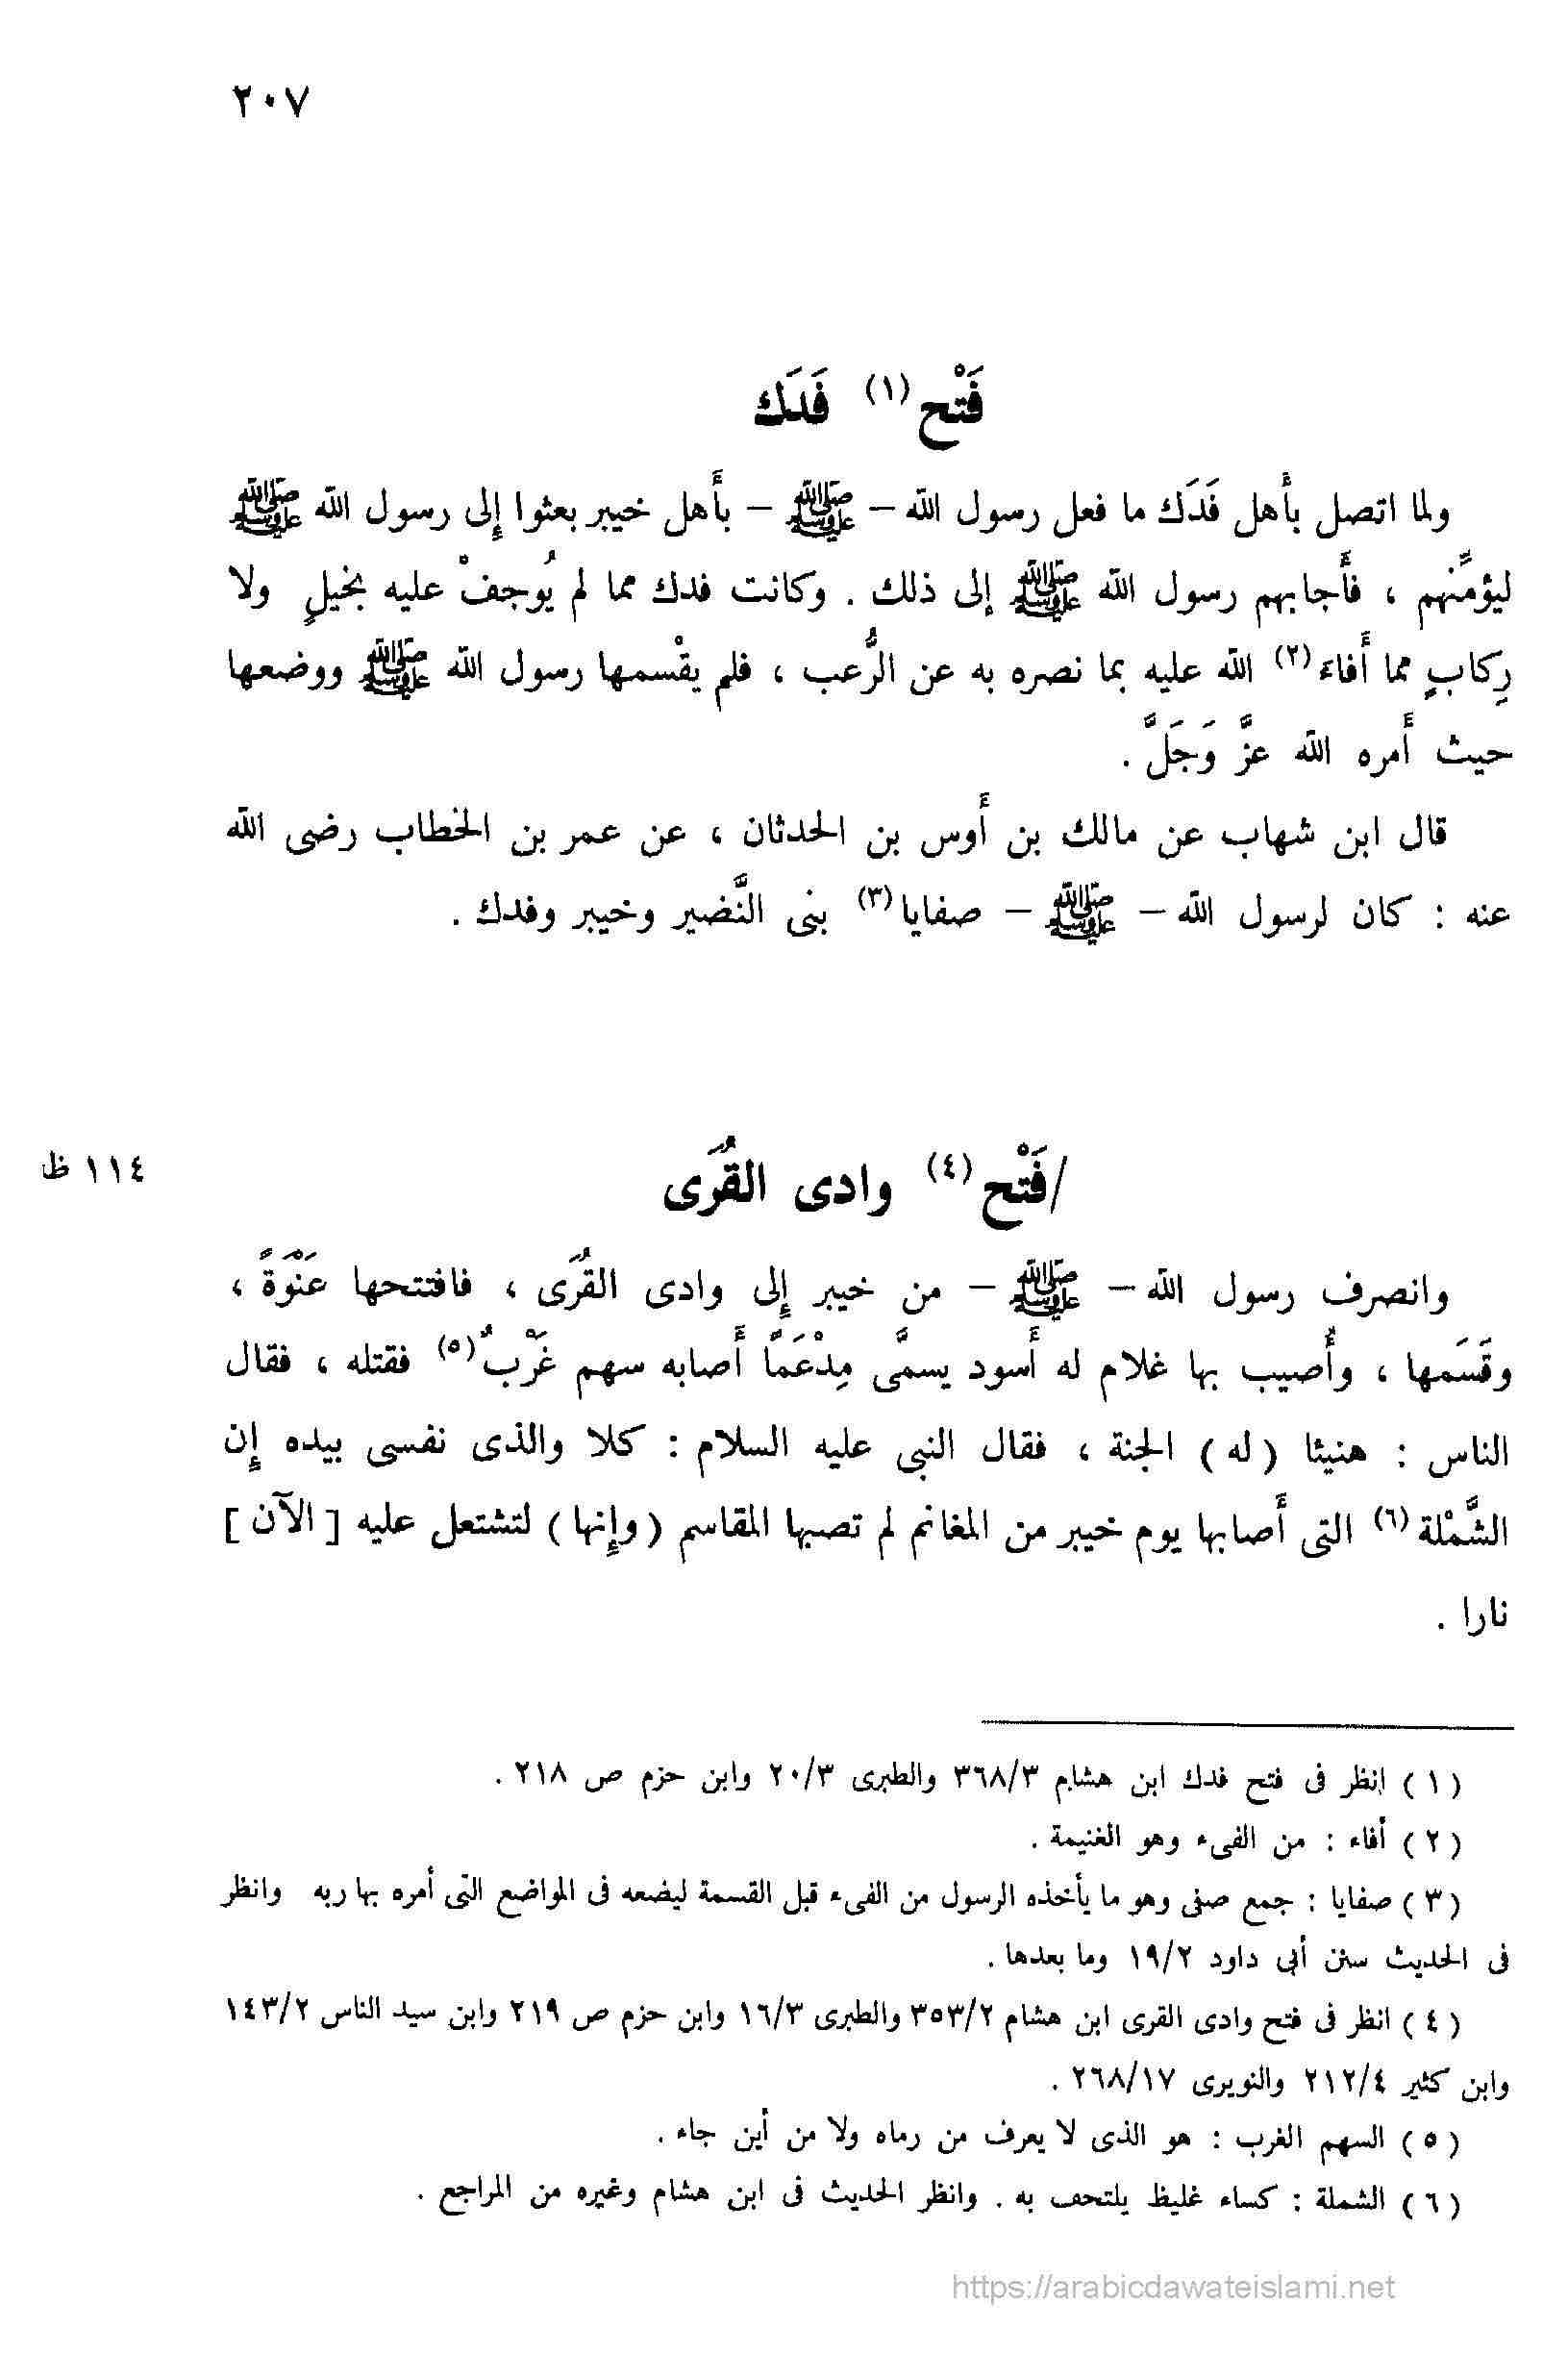 ٢٠٧
فَتْح(١) فَدَك
ولما اتصل بأَهل فَدَك ما فعل رسول الله – ﷺ – بأَهل خيبر بعثوا إِلى رسول الله ﷺ
ليؤمِّنهم ، فأَجابهم رسول الله ﷺ إلى ذلك . وكانت فدك مما لم يُوجفْ عليه بخيلٍ ولا
رِكابٍ مما أَفاءَ(٢) الله عليه بما نصره به عن الرُّعب ، فلم يقْسمها رسول الله ﷺ ووضعها
حيث أَمره الله عزَّ وَجَلَّ .
قال ابن شهاب عن مالك بن أَوس بن الحدثان ، عن عمر بن الخطاب رضى الله
عنه : كان لرسول الله – ﷺ – صفايا(٣) بنى النَّضير وخيبر وفدك .
/فَتْح(٤) وادى القُرَى
١١٤ ظ
وانصرف رسول الله – ﷺ – من خيبر إِلى وادى القُرَى ، فافتتحها عَنْوَةً ،
وقَسَمها ، وأُصيب بها غلام له أَسود يسمَّى مِدْعَمًا أَصابه سهم غَرْبٌ(٥) فقتله ، فقال
الناس : هنيئا (له) الجنة ، فقال النبى عليه السلام : كلا والذى نفسى بيده إِن
الشَّمْلة(٦) التى أَصابها يوم خيبر من المغانم لم تصبها المقاسم (وإِنها) لتشتعل عليه [ الآن ]
نارا .
(١) انظر فى فتح فدك ابن هشام ٣٦٨/٣ والطبرى ٢٠/٣ وابن حزم ص ٢١٨ .
(٢) أفاء : من الفىء وهو الغنيمة .
(٣) صفايا : جمع صفى وهو ما يأخذه الرسول من الفىء قبل القسمة ليضعه فى المواضع التى أمره بها ربه وانظر
فى الحديث سنن أبى داود ١٩/٢ وما بعدها .
(٤) انظر فى فتح وادى القرى ابن هشام ٣٥٣/٢ والطبرى ١٦/٣ وابن حزم ص ٢١٩ وابن سيد الناس ١٤٣/٢
وابن كثير ٢١٢/٤ والنويرى ٢٦٨/١٧ .
(٥) السهم الغرب : هو الذى لا يعرف من رماه ولا من أين جاء .
(٦) الشملة : كساء غليظ يلتحف به . وانظر الحديث فى ابن هشام وغيره من المراجع .
https://arabicdawateislami.net